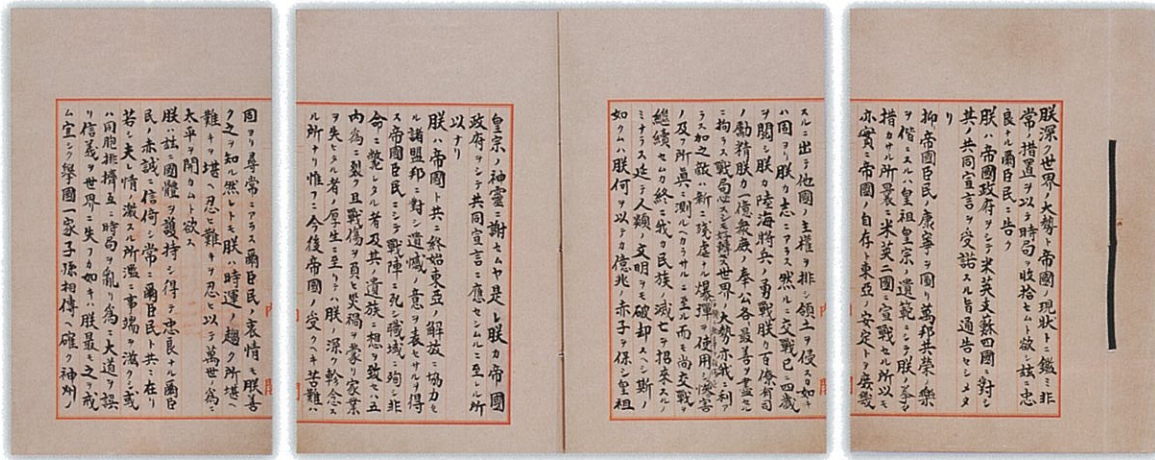 朕深ク世界ノ大勢ト帝國ノ現狀トニ鑑ミ非
常ノ措置ヲ以テ時局ヲ收拾セムト欲シ茲ニ忠
良ナル爾臣民ニ告ク
朕ハ帝國政府ヲシテ米英支蘇四國ニ對シ
其ノ共同宣言ヲ受諾スル旨通告セシメタ
リ
抑〻帝國臣民ノ康寧ヲ圖リ萬邦共榮ノ樂
ヲ偕ニスルハ皇祖皇宗ノ遺範ニシテ朕ノ拳〻
措カサル所曩ニ米英二國ニ宣戰セル所以モ
亦實ニ帝國ノ自存ト東亞ノ安定トヲ庶幾
スルニ出テ他國ノ主權ヲ排シ領土ヲ侵スカ如キ
ハ固ヨリ朕カ志ニアラス然ルニ交戰已ニ四歳
ヲ閲シ朕カ陸海將兵ノ勇戰朕カ百僚有司
ノ勵精朕カ一億衆庶ノ奉公各〻最善ヲ盡セル
ニ拘ラス戰局必スシモ好轉セス世界ノ大勢亦我ニ利ア
ラス加之敵ハ新ニ殘虐ナル爆彈ヲ使用シテ頻ニ無辜ヲ殺傷シ慘害
ノ及フ所眞ニ測ルヘカラサルニ至ル而モ尚交戰ヲ
繼續セムカ終ニ我カ民族ノ滅亡ヲ招來スルノ
ミナラス延テ人類ノ文明ヲモ破却スヘシ斯ノ
如クムハ朕何ヲ以テカ億兆ノ赤子ヲ保シ皇祖
皇宗ノ神靈ニ謝セムヤ是レ朕カ帝國
政府ヲシテ共同宣言ニ應セシムルニ至レル所
以ナリ
朕ハ帝國ト共ニ終始東亞ノ解放ニ協力セ
ル諸盟邦ニ對シ遺憾ノ意ヲ表セサルヲ得
ス帝國臣民ニシテ戰陣ニ死シ職域ニ殉シ非
命ニ斃レタル者及其ノ遺族ニ想ヲ致セハ五
内爲ニ裂ク且戰傷ヲ負ヒ災禍ヲ蒙リ家業
ヲ失ヒタル者ノ厚生ニ至リテハ朕ノ深ク軫念ス
ル所ナリ惟フニ今後帝國ノ受クヘキ苦難ハ
固ヨリ尋常ニアラス爾臣民ノ衷情モ朕善
ク之ヲ知ル然レトモ朕ハ時運ノ趨ク所堪ヘ
難キヲ堪ヘ忍ヒ難キヲ忍ヒ以テ萬世ノ爲ニ
太平ヲ開カムト欲ス
朕ハ茲ニ國體ヲ護持シ得テ忠良ナル爾臣
民ノ赤誠ニ信倚シ常ニ爾臣民ト共ニ在リ
若シ夫レ情ノ激スル所濫ニ事端ヲ滋クシ或
ハ同胞排擠互ニ時局ヲ亂リ爲ニ大道ヲ誤
リ信義ヲ世界ニ失フカ如キハ朕最モ之ヲ戒
ム宜シク擧國一家子孫相傳ヘ確ク神州